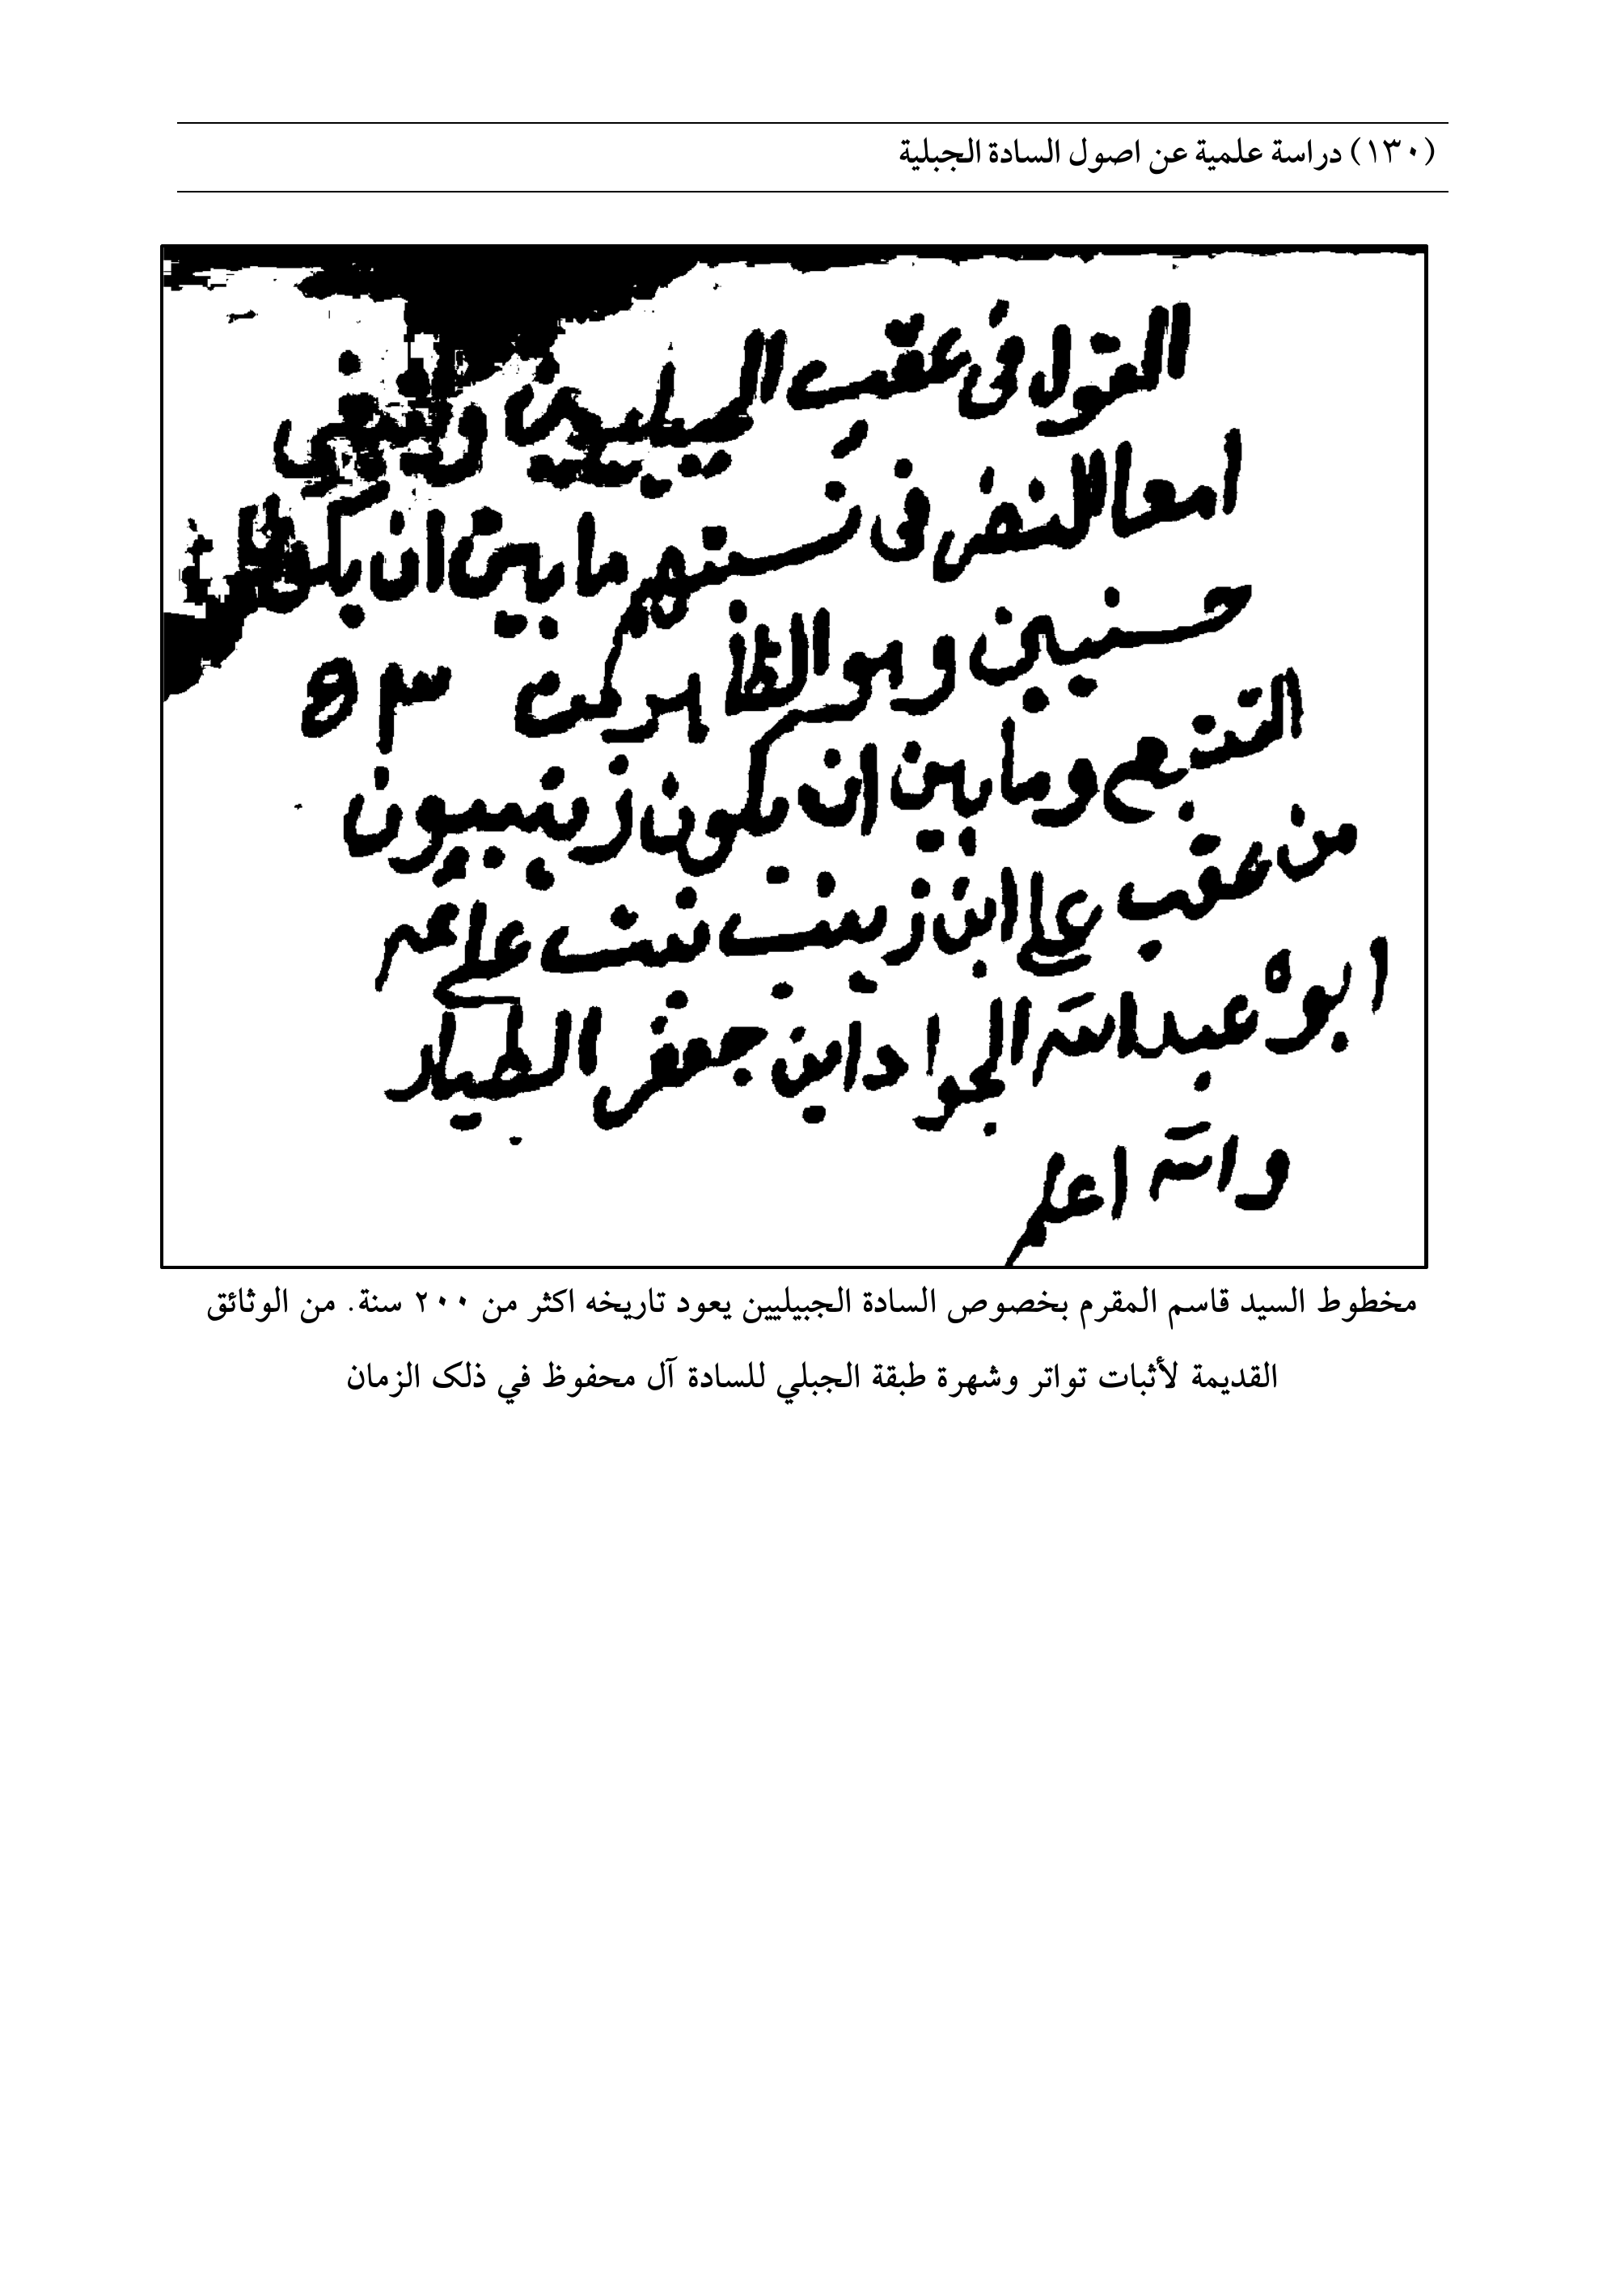 (١٣٠) دراسة علمية عن اصول السادة الجبلية
القول في عقب الجبيليين وينبغي
امعا النض في نسبتهم ما بين ان يكو
حسنيين وهو الظاهر من
التتبع وما بين ان يكون زينبيون
من عقب علي ابن زينب بنت علي عم
ابوه عبد الله الجواد ابن جعفر الطيار
والله اعلم
مخطوط السيد قاسم المقرم بخصوص السادة الجبيليين يعود تاريخه اكثر من ٢٠٠ سنة. من الوثائق
القديمة لأثبات تواتر وشهرة طبقة الجبلي للسادة آل محفوظ في ذلک الزمان